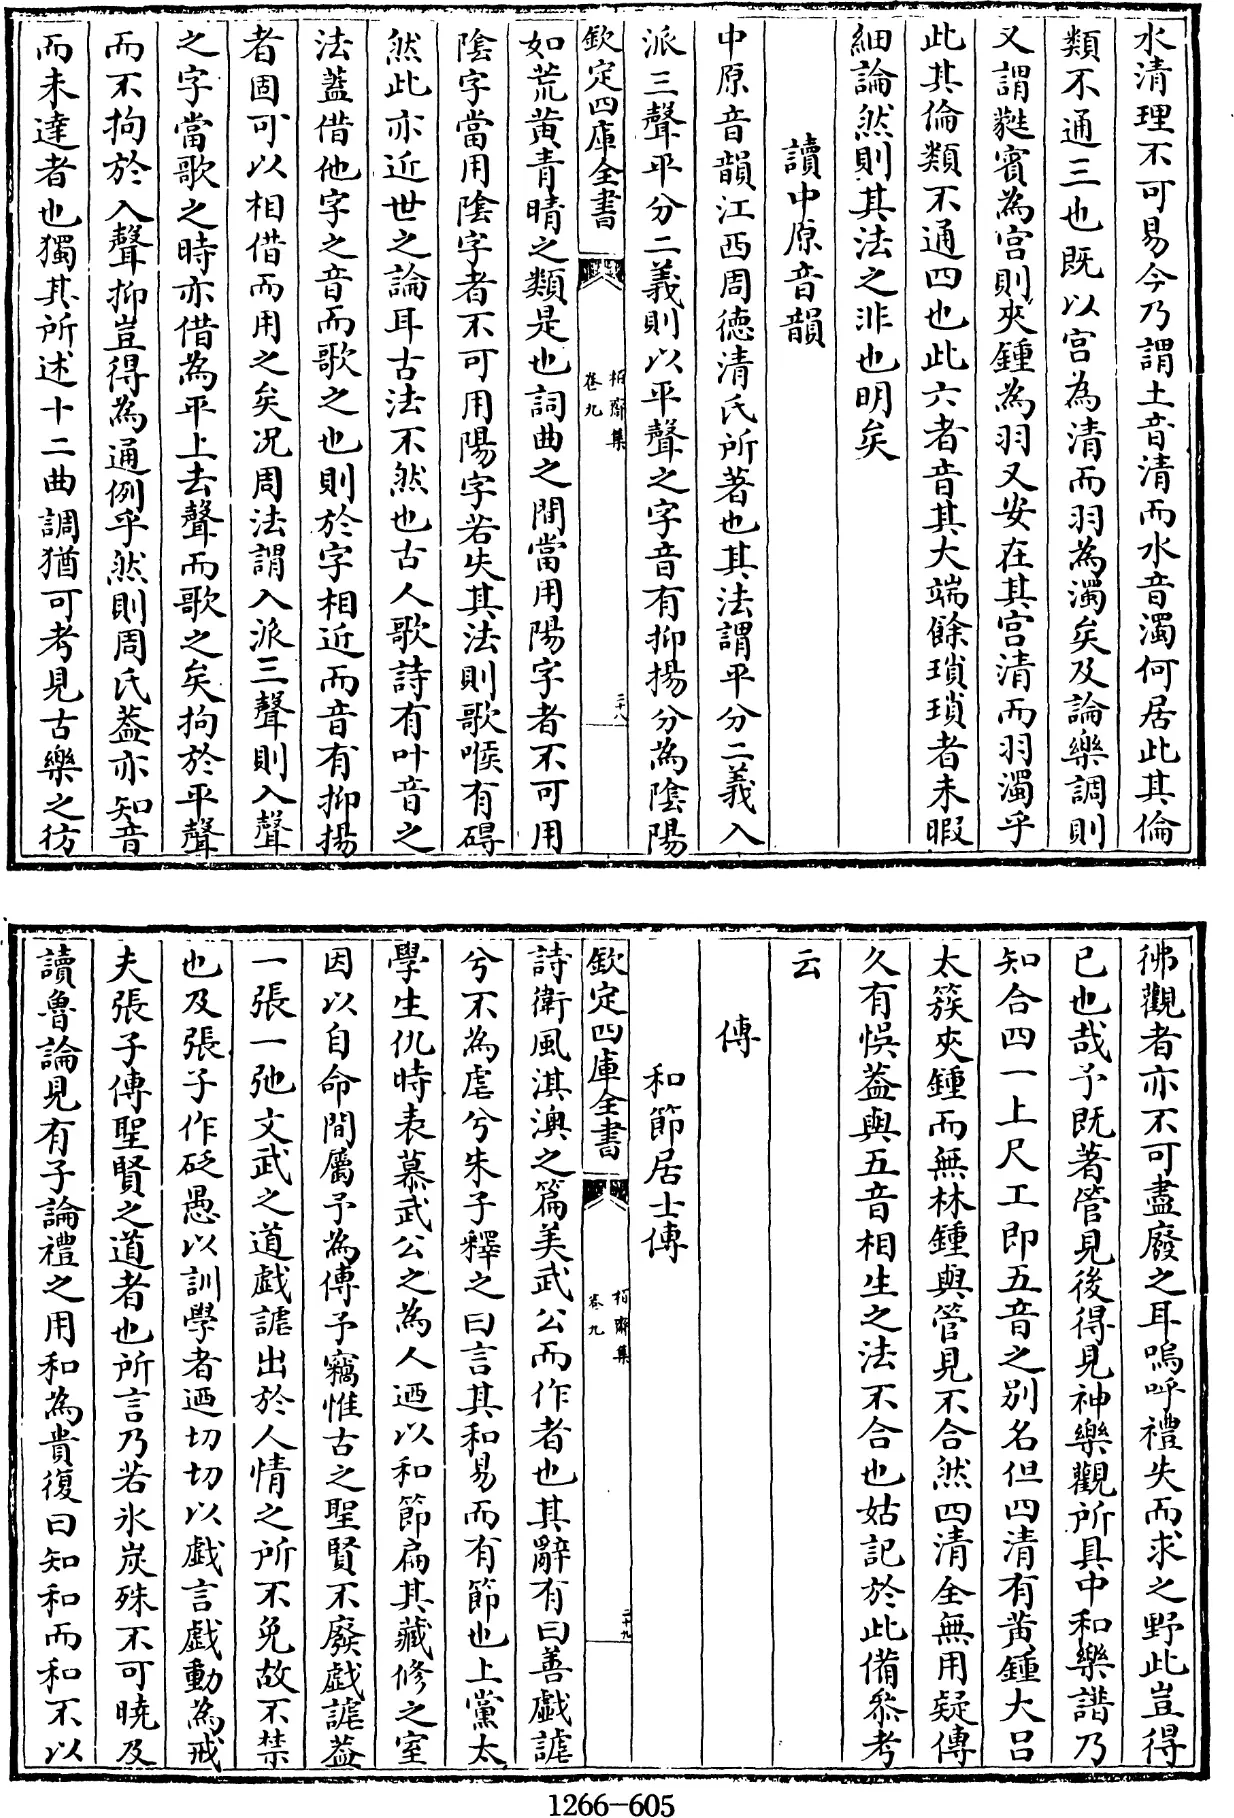 水清理不可易今乃謂土音清而水音濁何居此其倫
類不通三也既以宫為清而羽為濁矣及論樂調則
又謂蕤賓為宫則夾鍾為羽又安在其宫清而羽濁乎
此其倫類不通四也此六者音其大端餘瑣瑣者未暇
細論然則其法之非也明矣
讀中原音韻
中原音韻江西周德清氏所著也其法謂平分二義入
派三聲平分二義則以平聲之字音有抑揚分為陰陽
欽定四庫全書
栢齋集
卷九
二十八
如荒黄青晴之類是也詞曲之間當用陽字者不可用
陰字當用陰字者不可用陽字若失其法則歌喉有碍
然此亦近世之論耳古法不然也古人歌詩有叶音之
法蓋借他字之音而歌之也則於字相近而音有抑揚
者固可以相借而用之矣况周法謂入派三聲則入聲
之字當歌之時亦借為平上去聲而歌之矣拘於平聲
而不拘於入聲抑豈得為通例乎然則周氏葢亦知音
而未達者也獨其所述十二曲調猶可考見古樂之彷
彿觀者亦不可盡廢之耳嗚呼禮失而求之野此豈得
已也哉予既著管見後得見神樂觀所具中和樂譜乃
知合四一上尺工即五音之别名但四清有黄鍾大吕
太簇夾鍾而無林鍾與管見不合然四清全無用疑傳
久有悞葢與五音相生之法不合也姑記於此備叅考
云
傳
和節居士傳
欽定四庫全書
栢齋集
卷九
二十九
詩衛風淇澳之篇美武公而作者也其辭有曰善戲謔
兮不為虐兮朱子釋之曰言其和易而有節也上黨太
學生仇時表慕武公之為人迺以和節扁其藏修之室
因以自命間屬予為傳予竊惟古之聖賢不廢戲謔葢
一張一弛文武之道戲謔出於人情之所不免故不禁
也及張子作砭愚以訓學者迺切切以戲言戲動為戒
夫張子傳聖賢之道者也所言乃若氷炭殊不可曉及
讀魯論見有子論禮之用和為貴復曰知和而和不以
1266-605